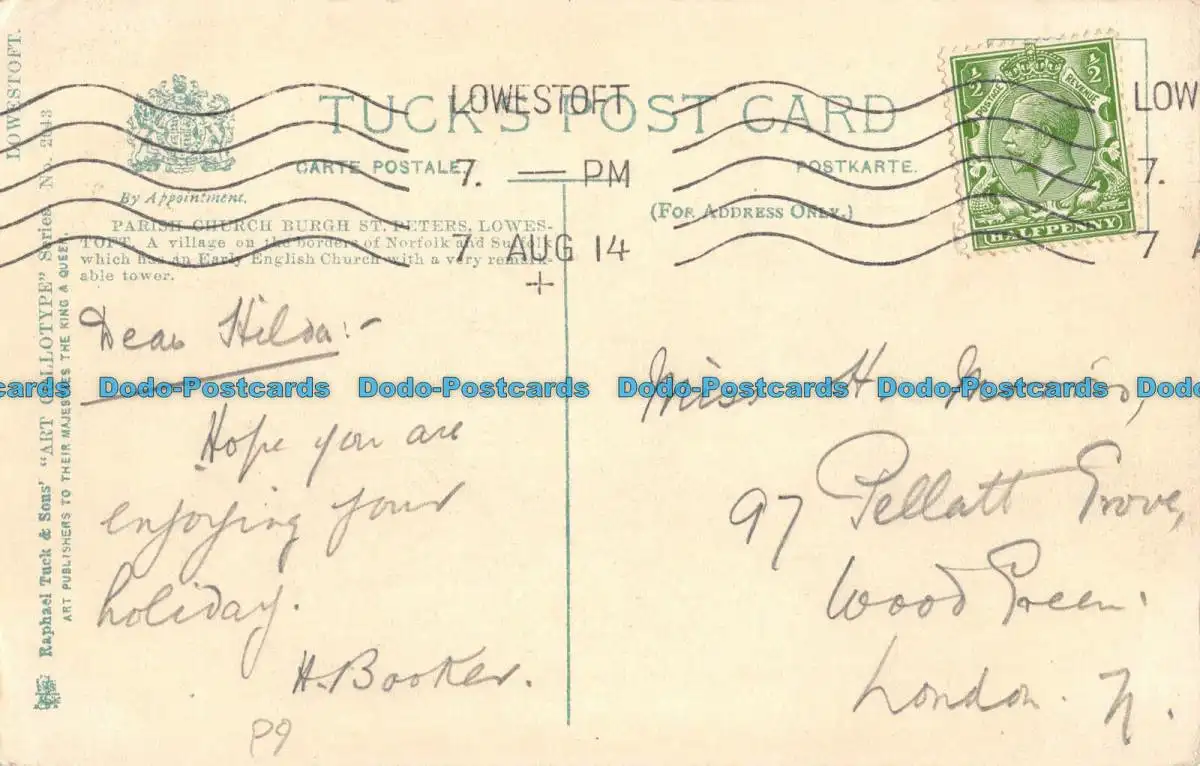 LOWESTOFT.
Raphael Tuck & Sons' "ART COLLOTYPE" Series No.
ART PUBLISHERS TO THEIR MAJESTIES THE KING & QUEEN.
TUCK'S POST CARD
CARTE POSTALE.
POSTKARTE.
By Appointment.
(FOR ADDRESS ONLY.)
PARISH CHURCH BURGH ST. PETERS, LOWES-
TOFT. A village on the borders of Norfolk and Suffolk
which has an Early English Church with a very remark-
able tower.
LOWESTOFT
7. — PM
7 AUG 14
+
LOW
7.
7 A
½ ½
POSTAGE REVENUE
HALFPENNY
Dear Hilda:-
Hope you are
enjoying your
holiday.
H. Booker.
P9
Miss H. Morris,
97 Pellatt Grove,
Wood Green.
London. N.
cards Dodo-Postcards Dodo-Postcards Dodo-Postcards Dodo-Postcards Dodo-